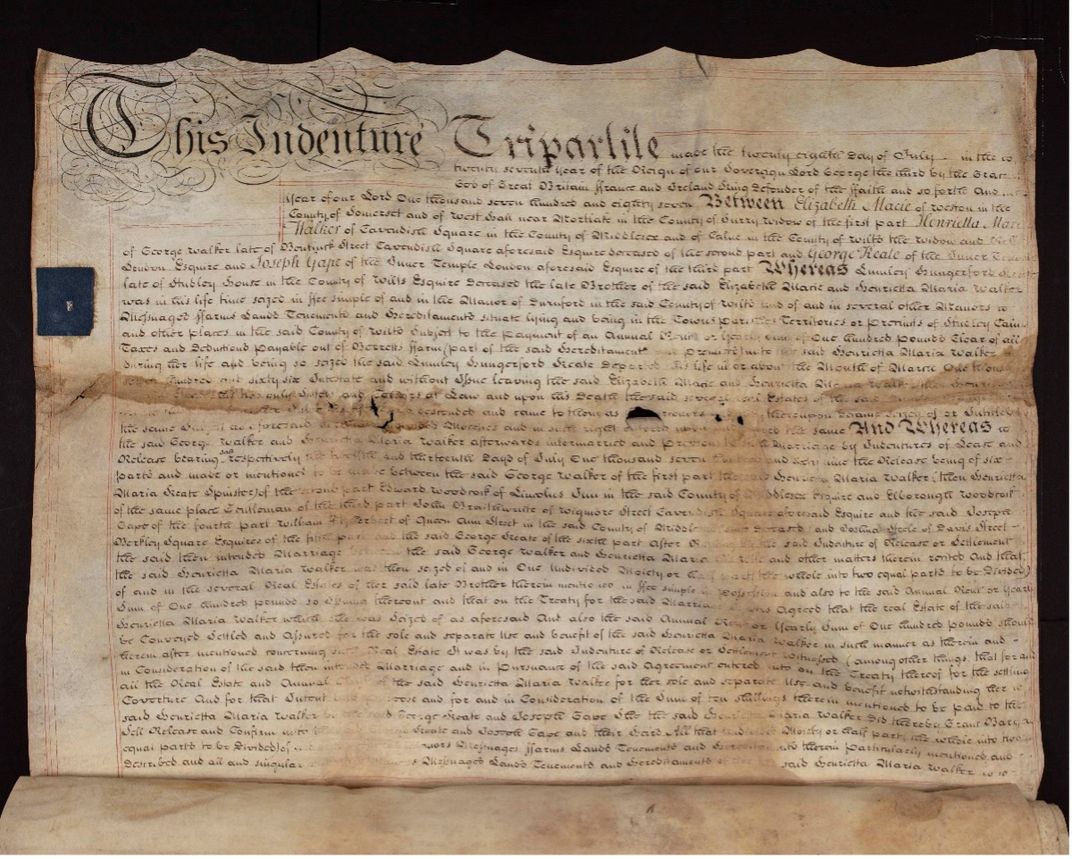 This Indenture Tripartite made the twenty eighth Day of July in the
twenty seventh year of the Reign of our Sovereign Lord George the third by the Grace
God of Great Britain ffrance and Ireland King Defender of the ffaith and so forth And
Year of our Lord One thousand seven hundred and eighty seven Between Elizabeth Macie of Weston in the
County of Somerset and of West Hall near Mortlake in the County of Surry Widow of the first part Henrietta Maria
Walker of Cavendish Square in the County of Middlesex and of Calne in the County of Wilts the Widow and
of George Walker late of Bentinck Street Cavendish Square aforesaid Esquire deceased of the second part and George Keate of the Inner Temple
London Esquire and Joseph Gape of the Inner Temple London aforesaid Esquire of the third part Whereas Lumley Hungerford Keate
late of Studley House in the County of Wilts Esquire Deceased the late Brother of the said Elizabeth Macie and Henrietta Maria Walker
was in his life time seized in ffee simple of and in the Manor of Durnford in the said County of Wilts and of and in several other Manors
Messuages ffarms Lands Tenements and Hereditaments situate lying and being in the Towns Parishes Territories or Precincts of Studley
and other places in the said County of Wilts subject to the Payment of an Annual Rent or yearly sum of One hundred Pounds Clear of all
Taxes and Deductions Payable out of ffarm (part of the said Hereditaments and Premises) unto the said Henrietta Maria Walker
during her life and being so seized the said Lumley Hungerford Keate Departed this life in or about the Month of March One thousand
seven hundred and sixty six Intestate and without Issue leaving the said Elizabeth Macie and Henrietta Maria Walker
his only Sisters and Coheirs at Law and upon his Death the said several Estates of the said
descended and came to them as thereupon became seized of or Intitled to
the same subject as aforesaid in Moieties and in such right the same And Whereas
the said George Walker and Henrietta Maria Walker afterwards intermarried and Marriage by Indentures of Lease and
Release bearing date respectively the twelfth and thirteenth Days of July One thousand seven hundred and sixty nine the Release being of six
parts and made or mentioned to be made between the said George Walker of the first part the said Henrietta Maria Walker (then Henrietta
Maria Keate Spinster) of the second part Edward Woodcock of Lincolns Inn in the said County of Middlesex Esquire and Elborough Woodcock
of the same place Gentleman of the third part John Braithwaite of Wigmore Street Cavendish Square aforesaid Esquire and the said Joseph
Gape of the fourth part William of Queen Ann Street in the said County of and Joshua Steele of Davis Street
Berkley Square Esquires of the fifth part and the said George Keate of the sixth part After the said Indenture of Release or Settlement
the said then intended Marriage the said George Walker and Henrietta Maria and other matters therein recited And that
the said Henrietta Maria Walker was then seized of and in One Undivided Moiety or half part the whole into two equal parts to be Divided)
of and in the several Real Estates of her said late Brother therein mentioned in ffee simple in possession and also to the said Annual Rent or yearly
Sum of One hundred pounds so issuing thereout and that on the Treaty for the said Marriage it was Agreed that the real Estate of the said
Henrietta Maria Walker which she was Seized of as aforesaid And also the said Annual Rent or yearly Sum of One hundred Pounds should
be Conveyed Settled and Assured for the sole and separate Use and benefit of the said Henrietta Maria Walker in such manner as therein and
herein after mentioned concerning such Real Estate It was by the said Indenture of Release or Settlement Witnessed (among other things) that for and
in Consideration of the said then intended Marriage and in Pursuance of the said Agreement entered into on the Treaty thereof for the settling
all the Real Estate and Annual of the said Henrietta Maria Walker for her sole and separate Use and benefit notwithstanding her
Coverture And for that Intent and for and in Consideration of the Sum of ten shillings therein mentioned to be paid to the
said Henrietta Maria Walker by George Keate and Joseph Gape She the said Henrietta Maria Walker Did thereby Grant Bargain
Sell Release and Confirm unto the Keate and Joseph Gape and their Heirs All that undivided Moiety or half part (the whole into two
equal parts to be Divided) of Messuages ffarms Lands Tenements and Hereditaments therein Particularly mentioned and
described and all and singular Messuages Lands Tenements and Hereditaments of the said Henrietta Maria Walker